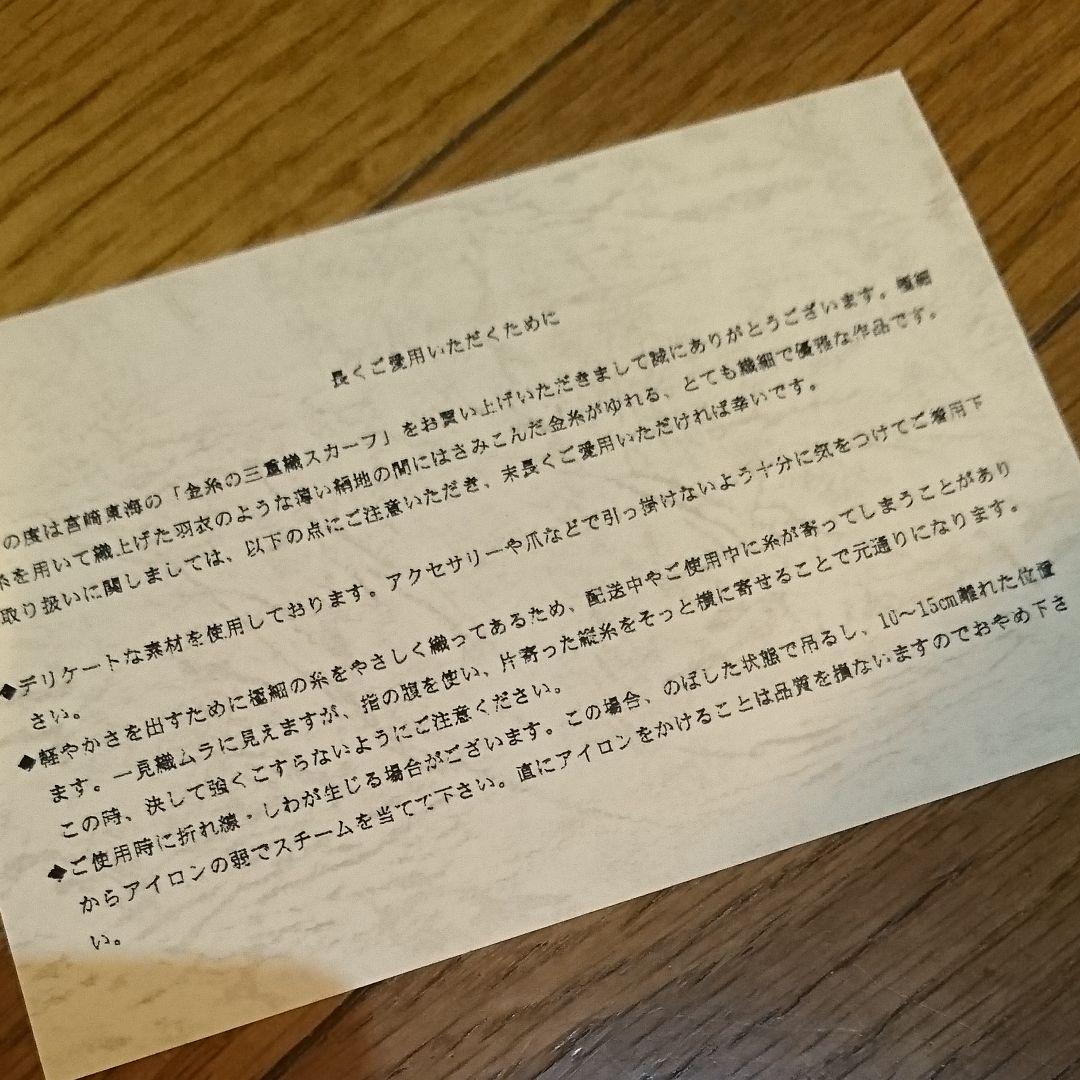 長くご愛用いただくために
の度は宮崎東海の「金糸の三重織スカーフ」をお買い上げいただきまして誠にありがとうございます。極細
糸を用いて織上げた羽衣のような薄い絹地の間にはさみこんだ金糸がゆれる、とても繊細で優雅な作品です。
取り扱いに関しましては、以下の点にご注意いただき、末長くご愛用いただければ幸いです。
◆デリケートな素材を使用しております。アクセサリーや爪などで引っ掛けないよう十分に気をつけてご着用下
さい。
◆軽やかさを出すために極細の糸をやさしく織ってあるため、配送中やご使用中に糸が寄ってしまうことがあり
ます。一見織ムラに見えますが、指の腹を使い、片寄った縦糸をそっと横に寄せることで元通りになります。
この時、決して強くこすらないようにご注意ください。
◆ご使用時に折れ線・しわが生じる場合がございます。この場合、のばした状態で吊るし、10～15cm離れた位置
からアイロンの弱でスチームを当てて下さい。直にアイロンをかけることは品質を損ないますのでおやめ下さ
い。